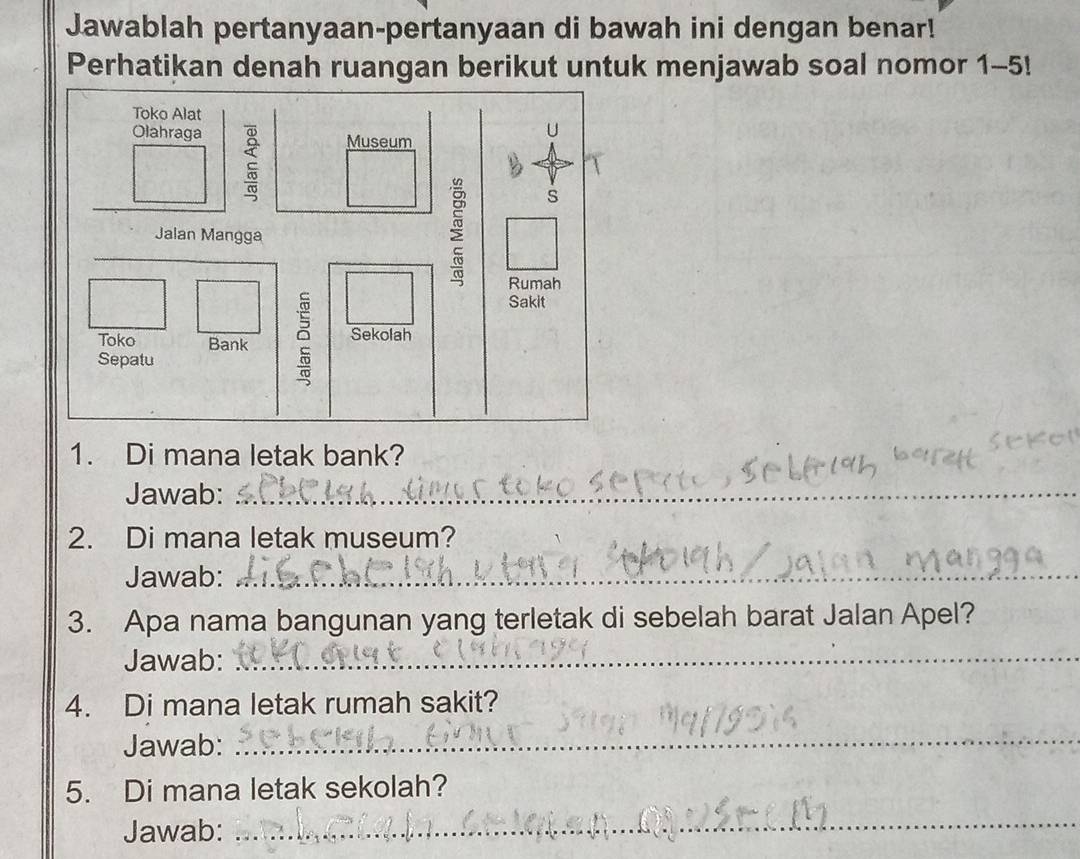 Jawablah pertanyaan-pertanyaan di bawah ini dengan benar!
Perhatikan denah ruangan berikut untuk menjawab soal nomor 1-5!
Toko Alat
Olahraga
Jalan Apel
Museum
U
B T
S
Jalan Manggis
Jalan Mangga
Rumah
Sakit
Jalan Durian
Sekolah
Toko
Sepatu
Bank
1. Di mana letak bank?
Jawab: sebelah timur toko sepatu, sebelah barat sekol
2. Di mana letak museum?
Jawab: disebelah utara sekolah / jalan mangga
3. Apa nama bangunan yang terletak di sebelah barat Jalan Apel?
Jawab: toko olahraga
4. Di mana letak rumah sakit?
Jawab: sebelah timur jalan manggis
5. Di mana letak sekolah?
Jawab: sebelah selatan museum